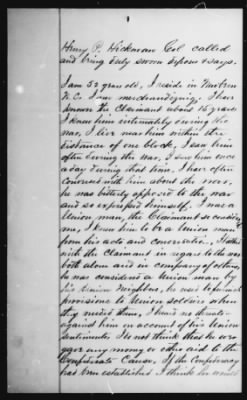 Henry P. Hickman Col called
and being duly sworn deposes & says.
I am 32 years old, I reside in Newbern
N.C. I am merchandizing. I have
known the Claimant about 15 years
I knew him intimately during the
war, I live near him within the
distance of one block, I saw him
often during the war, I saw him once
a day during that time, I have often
conversed with him about the war,
he was bitterly opposed to the war
and so expressed himself. I was a
Union man, the Claimant so considered
me, I knew him to be a Union man
from his acts and conversation. I talked
with the claimant in regard to the war
both alone and in company of others
he was considered a Union man by
his Union neighbors, he used to furnish
provisions to Union soldiers when
they needed them, I heard no threats
against him on account of his Union
sentiments. I do not think that he ever
gave any money or other aid to the
Confederate Cause, If the Confederacy
had been established I think he would